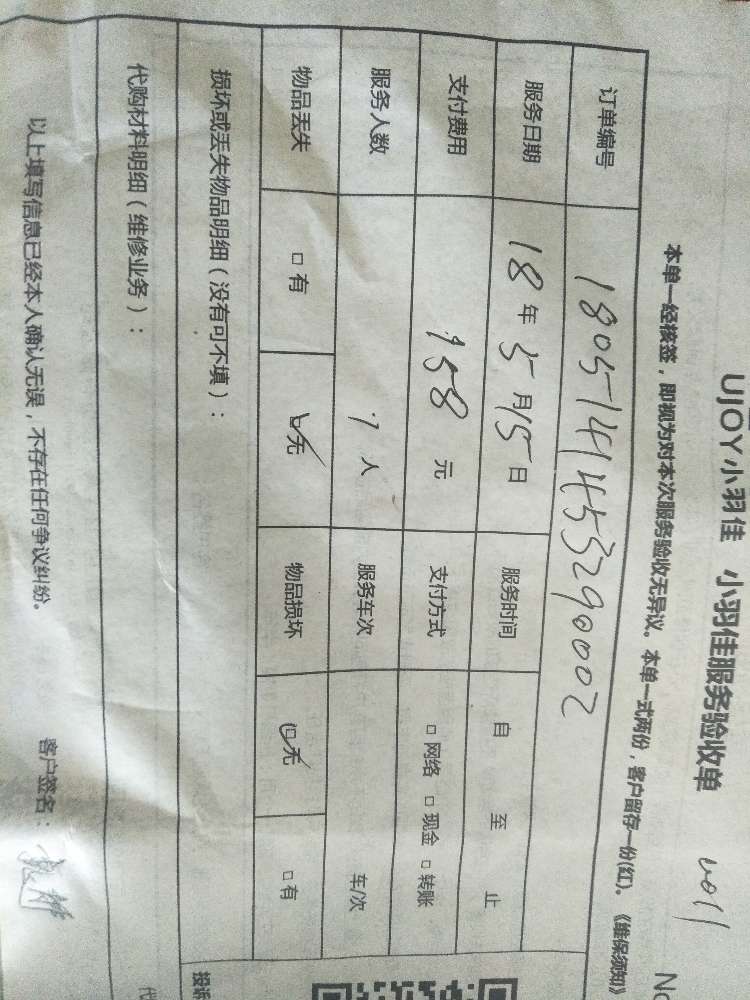 UJOY小羽佳 小羽佳服务验收单
No
本单一经核签，即视为对本次服务验收无异议。本单一式两份，客户留存一份(红)。《维保须知》
订单编号 1805141453290002
服务日期 18年5月15日 服务时间 自 至 止
支付费用 158元 支付方式 □网络 □现金 □转账
服务人数 1人 服务车次 车/次
物品丢失 □有 ☑无 物品损坏 ☑无 □有
损坏或丢失物品明细（没有可不填）：
代购材料明细（维修业务）：
以上填写信息已经本人确认无误，不存在任何争议纠纷。 客户签名：
投诉
代